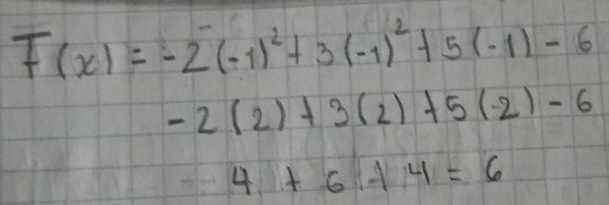 F(x) = -2(-1)² + 3(-1)² + 5(-1) - 6
-2(2) + 3(2) + 5(-2) - 6
4 + 6 + 4 = 6